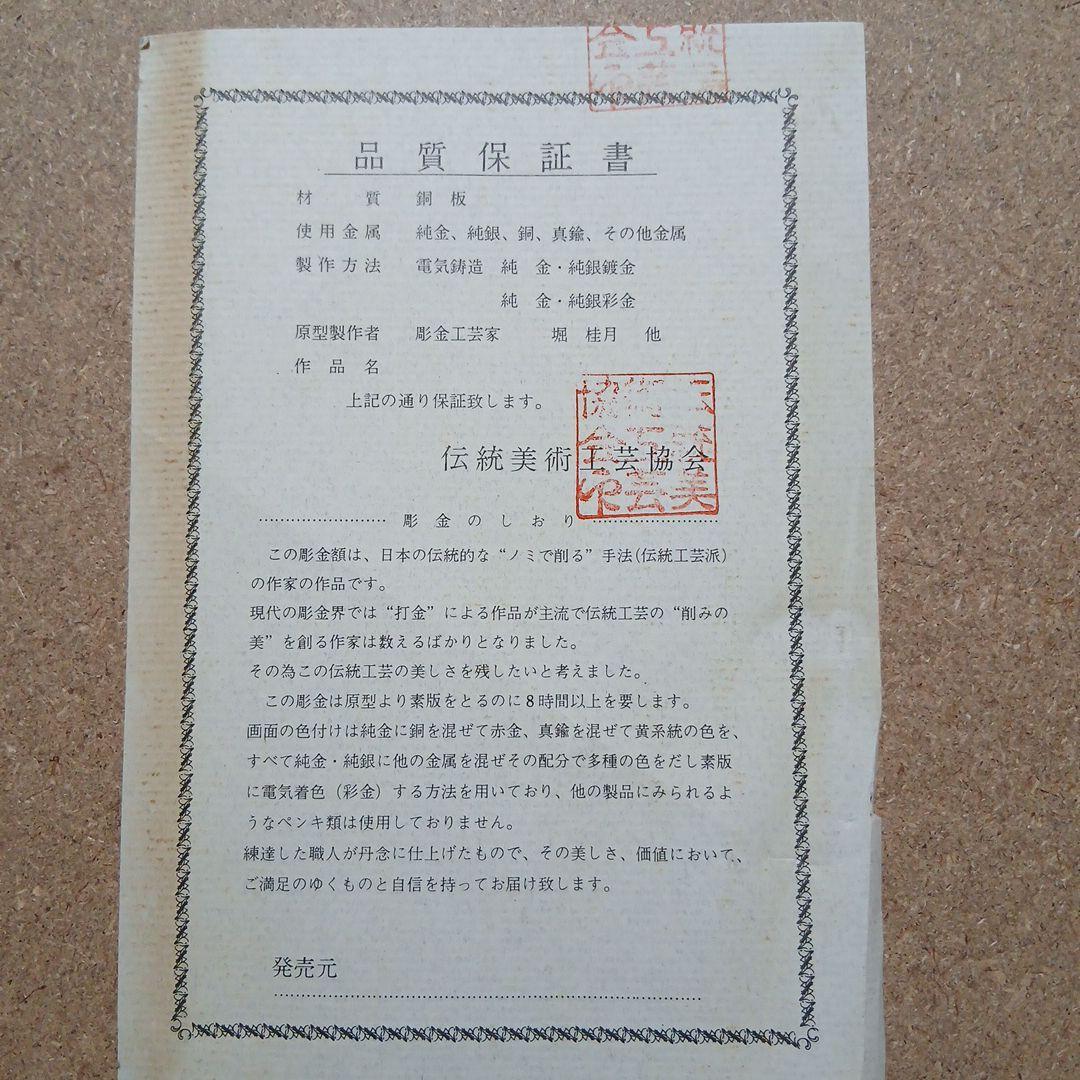 品質保証書
材 質 銅板
使用金属 純金、純銀、銅、真鍮、その他金属
製作方法 電気鋳造 純 金・純銀鍍金
純 金・純銀彩金
原型製作者 彫金工芸家 堀 桂月 他
作品名
上記の通り保証致します。
伝統美術工芸協会
彫金のしおり
この彫金額は、日本の伝統的な“ノミで削る”手法(伝統工芸派)
の作家の作品です。
現代の彫金界では“打金”による作品が主流で伝統工芸の“削みの
美”を創る作家は数えるばかりとなりました。
その為この伝統工芸の美しさを残したいと考えました。
この彫金は原型より素版をとるのに8時間以上を要します。
画面の色付けは純金に銅を混ぜて赤金、真鍮を混ぜて黄系統の色を、
すべて純金・純銀に他の金属を混ぜその配分で多種の色をだし素版
に電気着色（彩金）する方法を用いており、他の製品にみられるよ
うなペンキ類は使用しておりません。
練達した職人が丹念に仕上げたもので、その美しさ、価値において、
ご満足のゆくものと自信を持ってお届け致します。
発売元